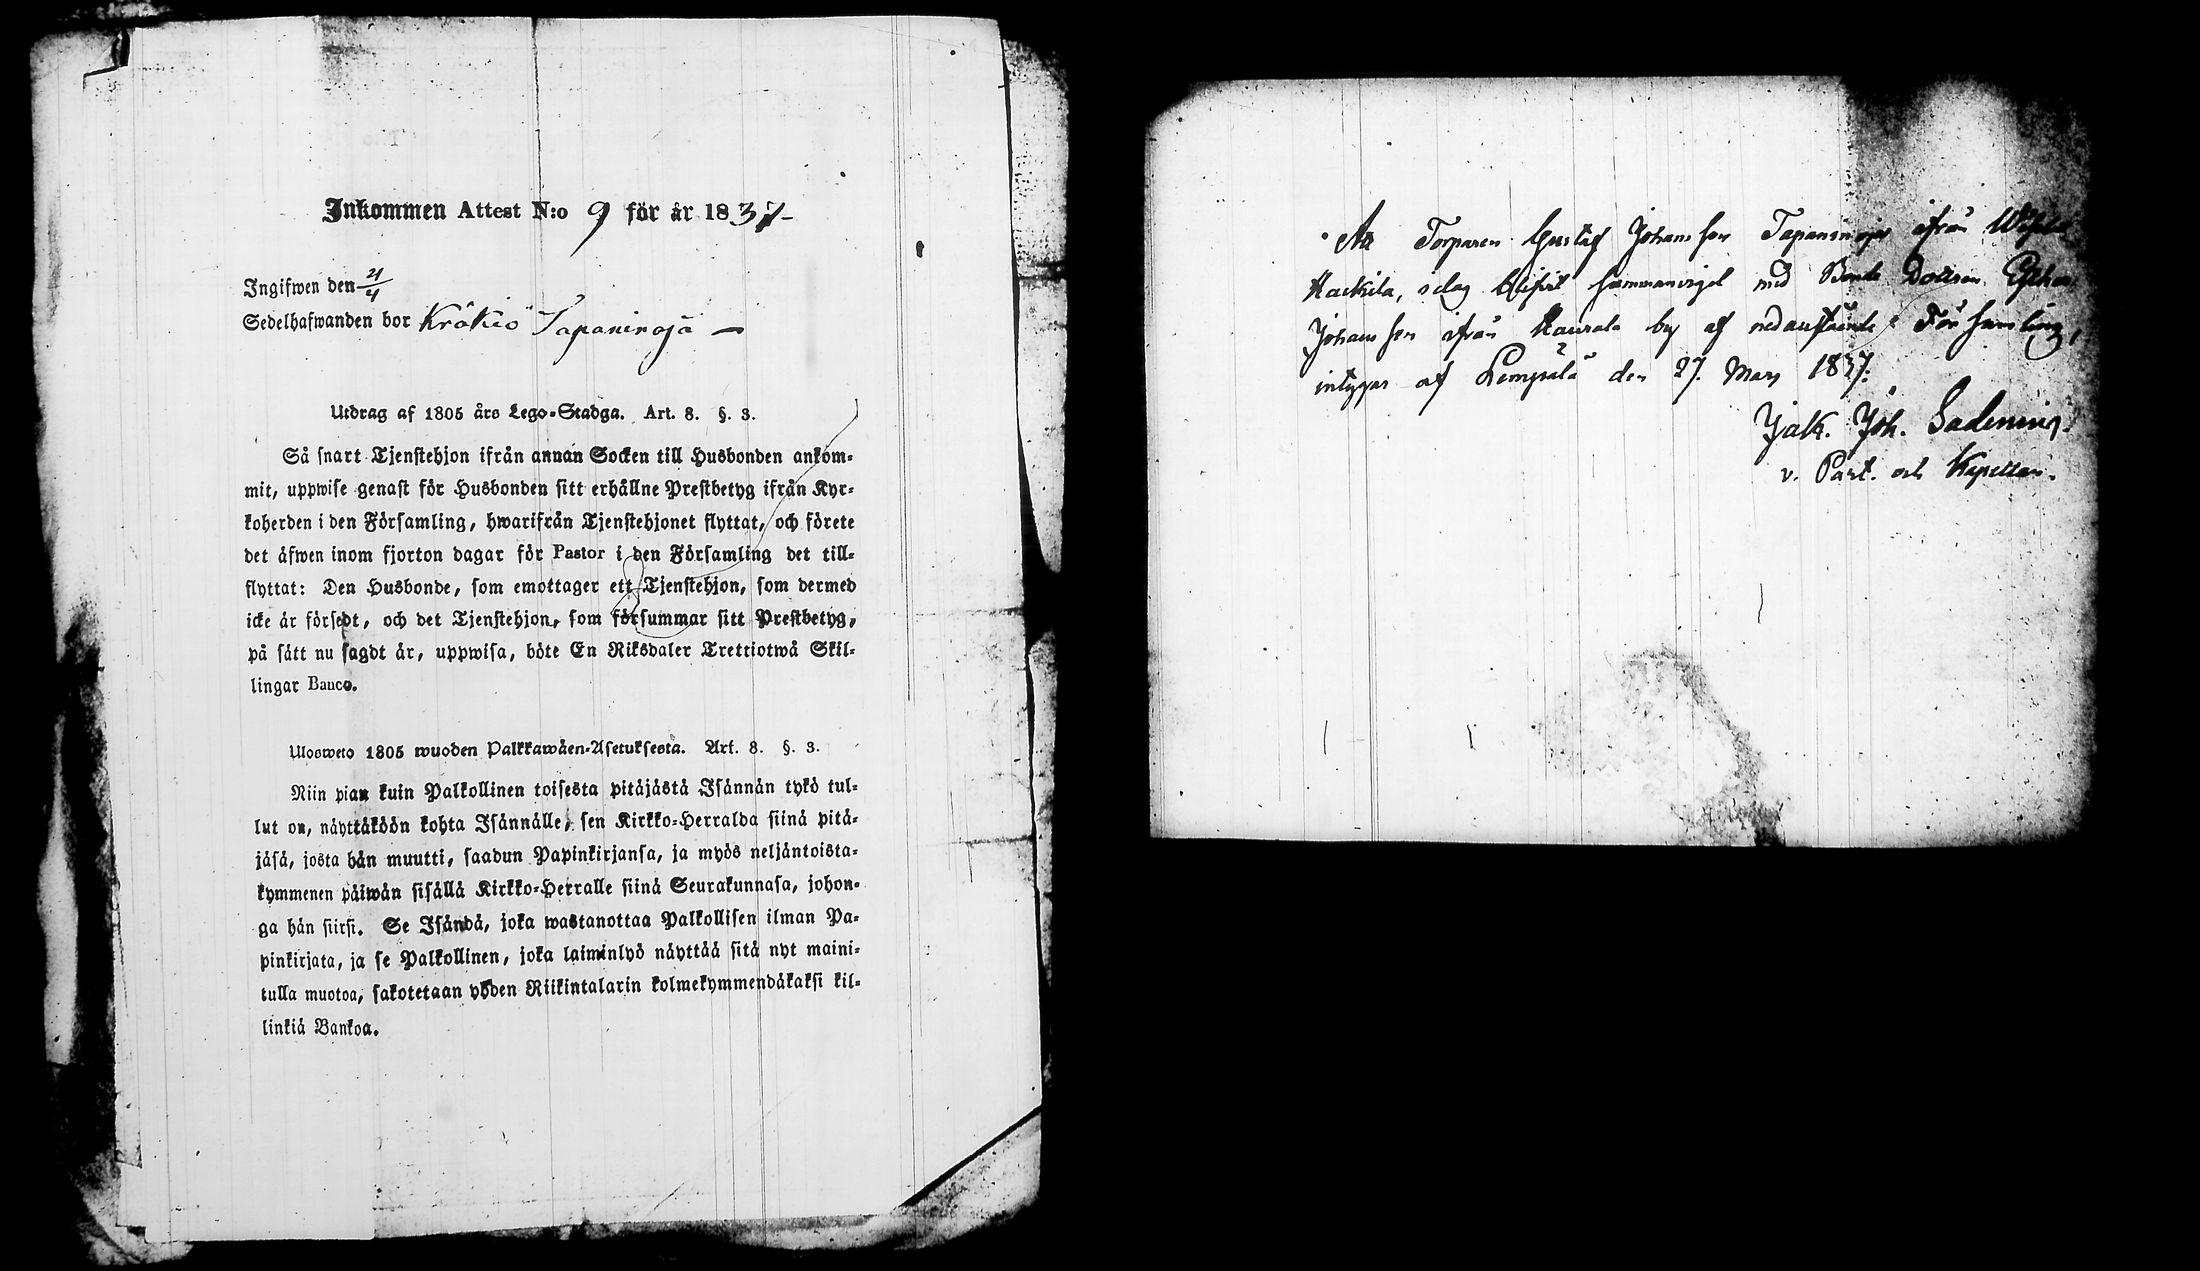 Inkommen Attest N:o 9 för år 1837
Ingifwen den 21/4
Sedelhafwanden bor Krökiö Tapaninoja
Utdrag af 1805 års Lego-Stadga. Art. 8. §. 3.
Så snart Tjenstehjon ifrån annan Socken till Husbonden ankom-
mit, uppwise genast för Husbonden sitt erhållne Prestbetyg ifrån Kyr-
koherden i den Församling, hwarifrån Tjenstehjonet flyttat, och förete
det äfwen inom fjorton dagar för Pastor i den Församling det till-
flyttat: Den Husbonde, som emottager ett Tjenstehjon, som dermed
icke är försedt, och det Tjenstehjon, som försummar sitt Prestbetyg,
på sätt nu sagdt är, uppwisa, böte En Riksdaler Trettiotwå Skil-
lingar Banco.
Ulosweto 1805 wuoden Palkkawäen-Asetuksesta. Art. 8. §. 3.
Niin pian kuin Palkollinen toisesta pitäjästä Isännän tykö tul-
lut on, näyttäköön kohta Isännälle, sen Kirkko-Herralda siinä pitä-
jäsä, josta hän muutti, saadun Papinkirjansa, ja myös neljäntoista-
kymmenen päiwän sisällä Kirkko-Herralle siinä Seurakunnasa, johon-
ga hän siirsi. Se Isändä, joka wastanottaa Palkollisen ilman Pa-
pinkirjata, ja se Palkollinen, joka laiminlyö näyttää sitä nyt maini-
tulla muotoa, sakotetaan yhden Riikintalarin kolmekymmendäkaksi kil-
linkiä Bankoa.
Att Torparen Gustaf Johansson Tapaninoja ifrån
Hackila, idag blifvit sammanvigd med Bonde Dottren
Johansson ifrån Kaurala by af nedanstående Församling,
intygar af Lempälä den 27 Mars 1837.
Jak. Joh. Sadenius
v. Past. och Kapellan.